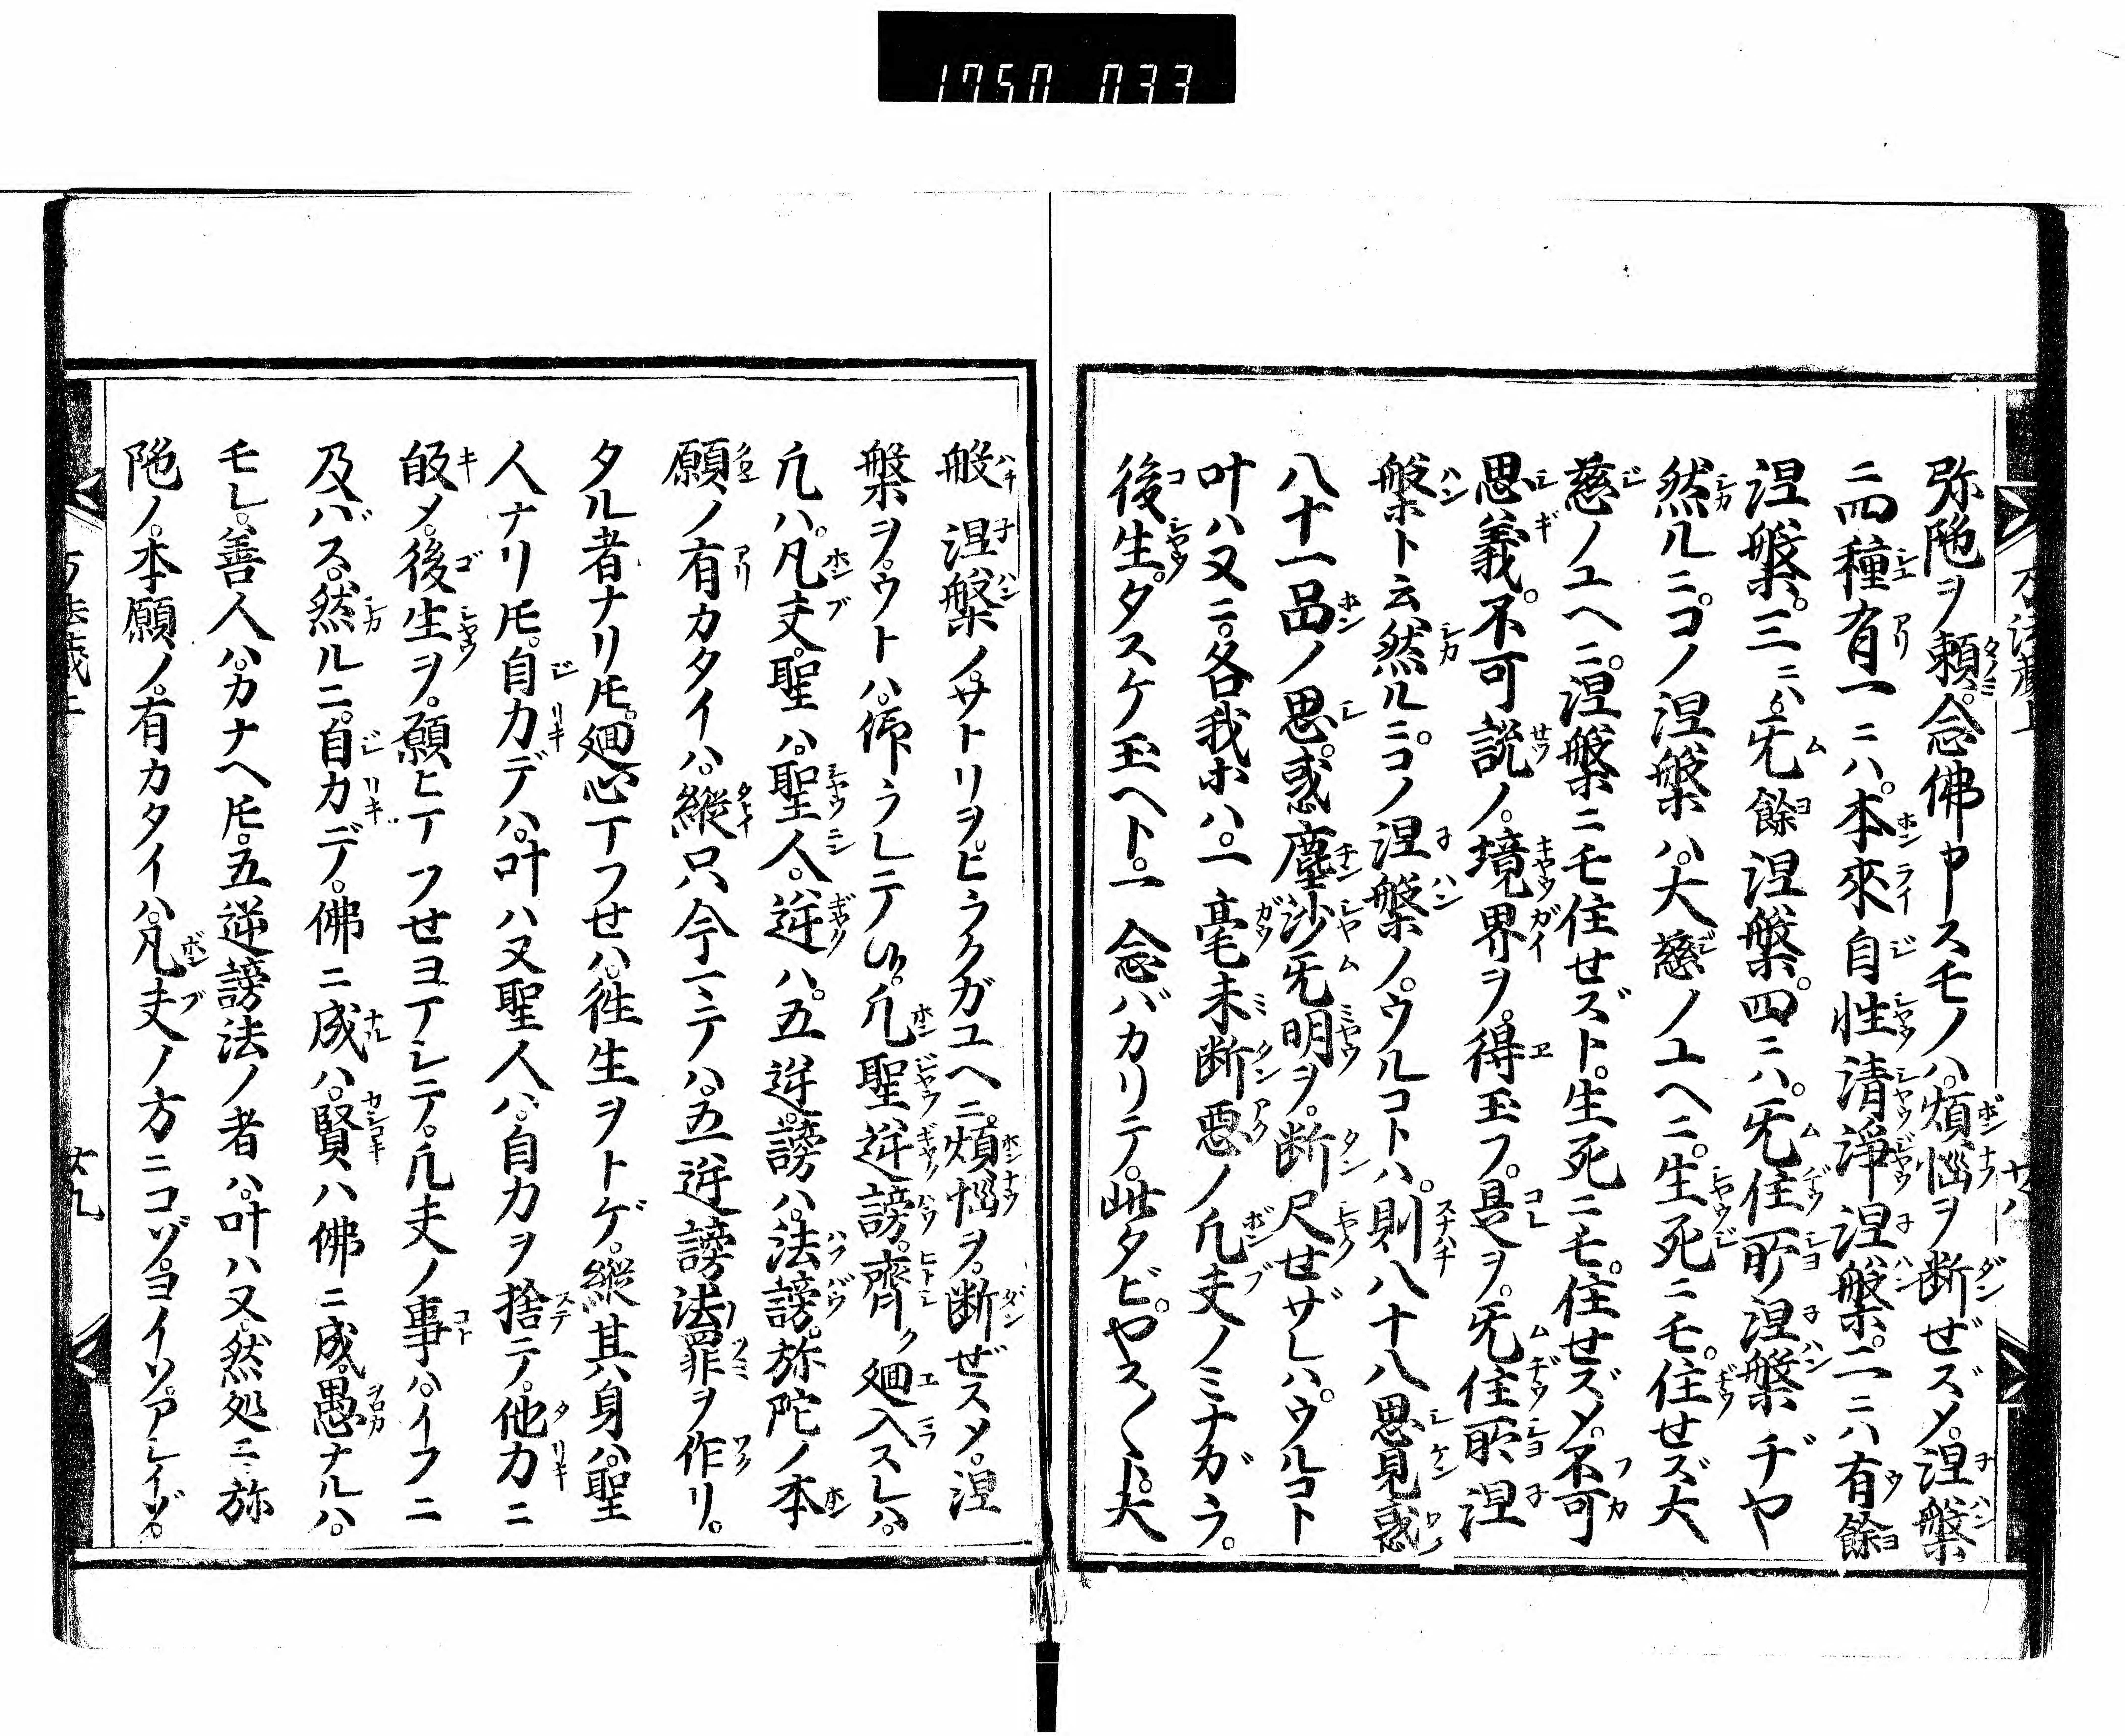 1750 033
弥陁ヲ頼。念佛申スモノハ。煩悩ヲ断ゼズメ。涅槃
ニ四種有一ニハ。本來自性清淨涅槃。二ニハ有餘
涅槃。三ニハ。旡餘涅槃。四ニハ。旡住所涅槃ヂヤ
然ルニ。コノ涅槃ハ。大慈ノユヘニ。生死ニモ。住せズ大
慈ノユヘニ。涅槃ニモ住せズト。生死ニモ。住せズメ。不可
思義。不可説ノ。境界ヲ。得玉フ。是ヲ。旡住所涅
槃ト云。然ルニ。コノ涅槃ノ。ウルコトハ。則八十八思見惑
八十一品ノ思。惑塵沙旡明ヲ。断尽せザレハ。ウルコト
叶ハ又ニ。各我ホハ。一毫未断惡ノ凡夫ノミナガラ。
後生。タスケ玉ヘト。一念バカリテ。此タビ。ヤス〱ト。大
般涅槃ノ。サトリヲ。ヒラクガユヘニ。煩悩ヲ。断ぜスメ。涅
槃ヲ。ウトハ。仰ラレテ。凡聖逆謗。齊ク廻入スレハ。
凡ハ。凡夫。聖ハ。聖人。逆ハ。五逆。謗ハ。法謗。弥陀ノ本
願ノ有カタイハ。縦只今マテハ。五逆謗法罪ヲ作リ。
タル者ナリ𪜈。廻心丁フせハ。徃生ヲトゲ。縦其身ハ。聖
人ナリ𪜈。自力デハ。叶ハ又聖人ハ。自力ヲ捨テ。他力ニ
皈メ。後生ヲ。願ヒ丁フせヨ丁レテ。凡夫ノ事ハ。イフニ
及バス。然ルニ。自力デ。佛ニ成ハ。賢ハ佛ニ成。愚ナルハ。
モレ。善人ハ。カナヘ𪜈。五逆謗法ノ者ハ。叶ハ又。然処ニ弥
陁ノ。本願ノ。有カタイハ。凡夫ノ方ニコソ。ヨイソ。アレイゾ。